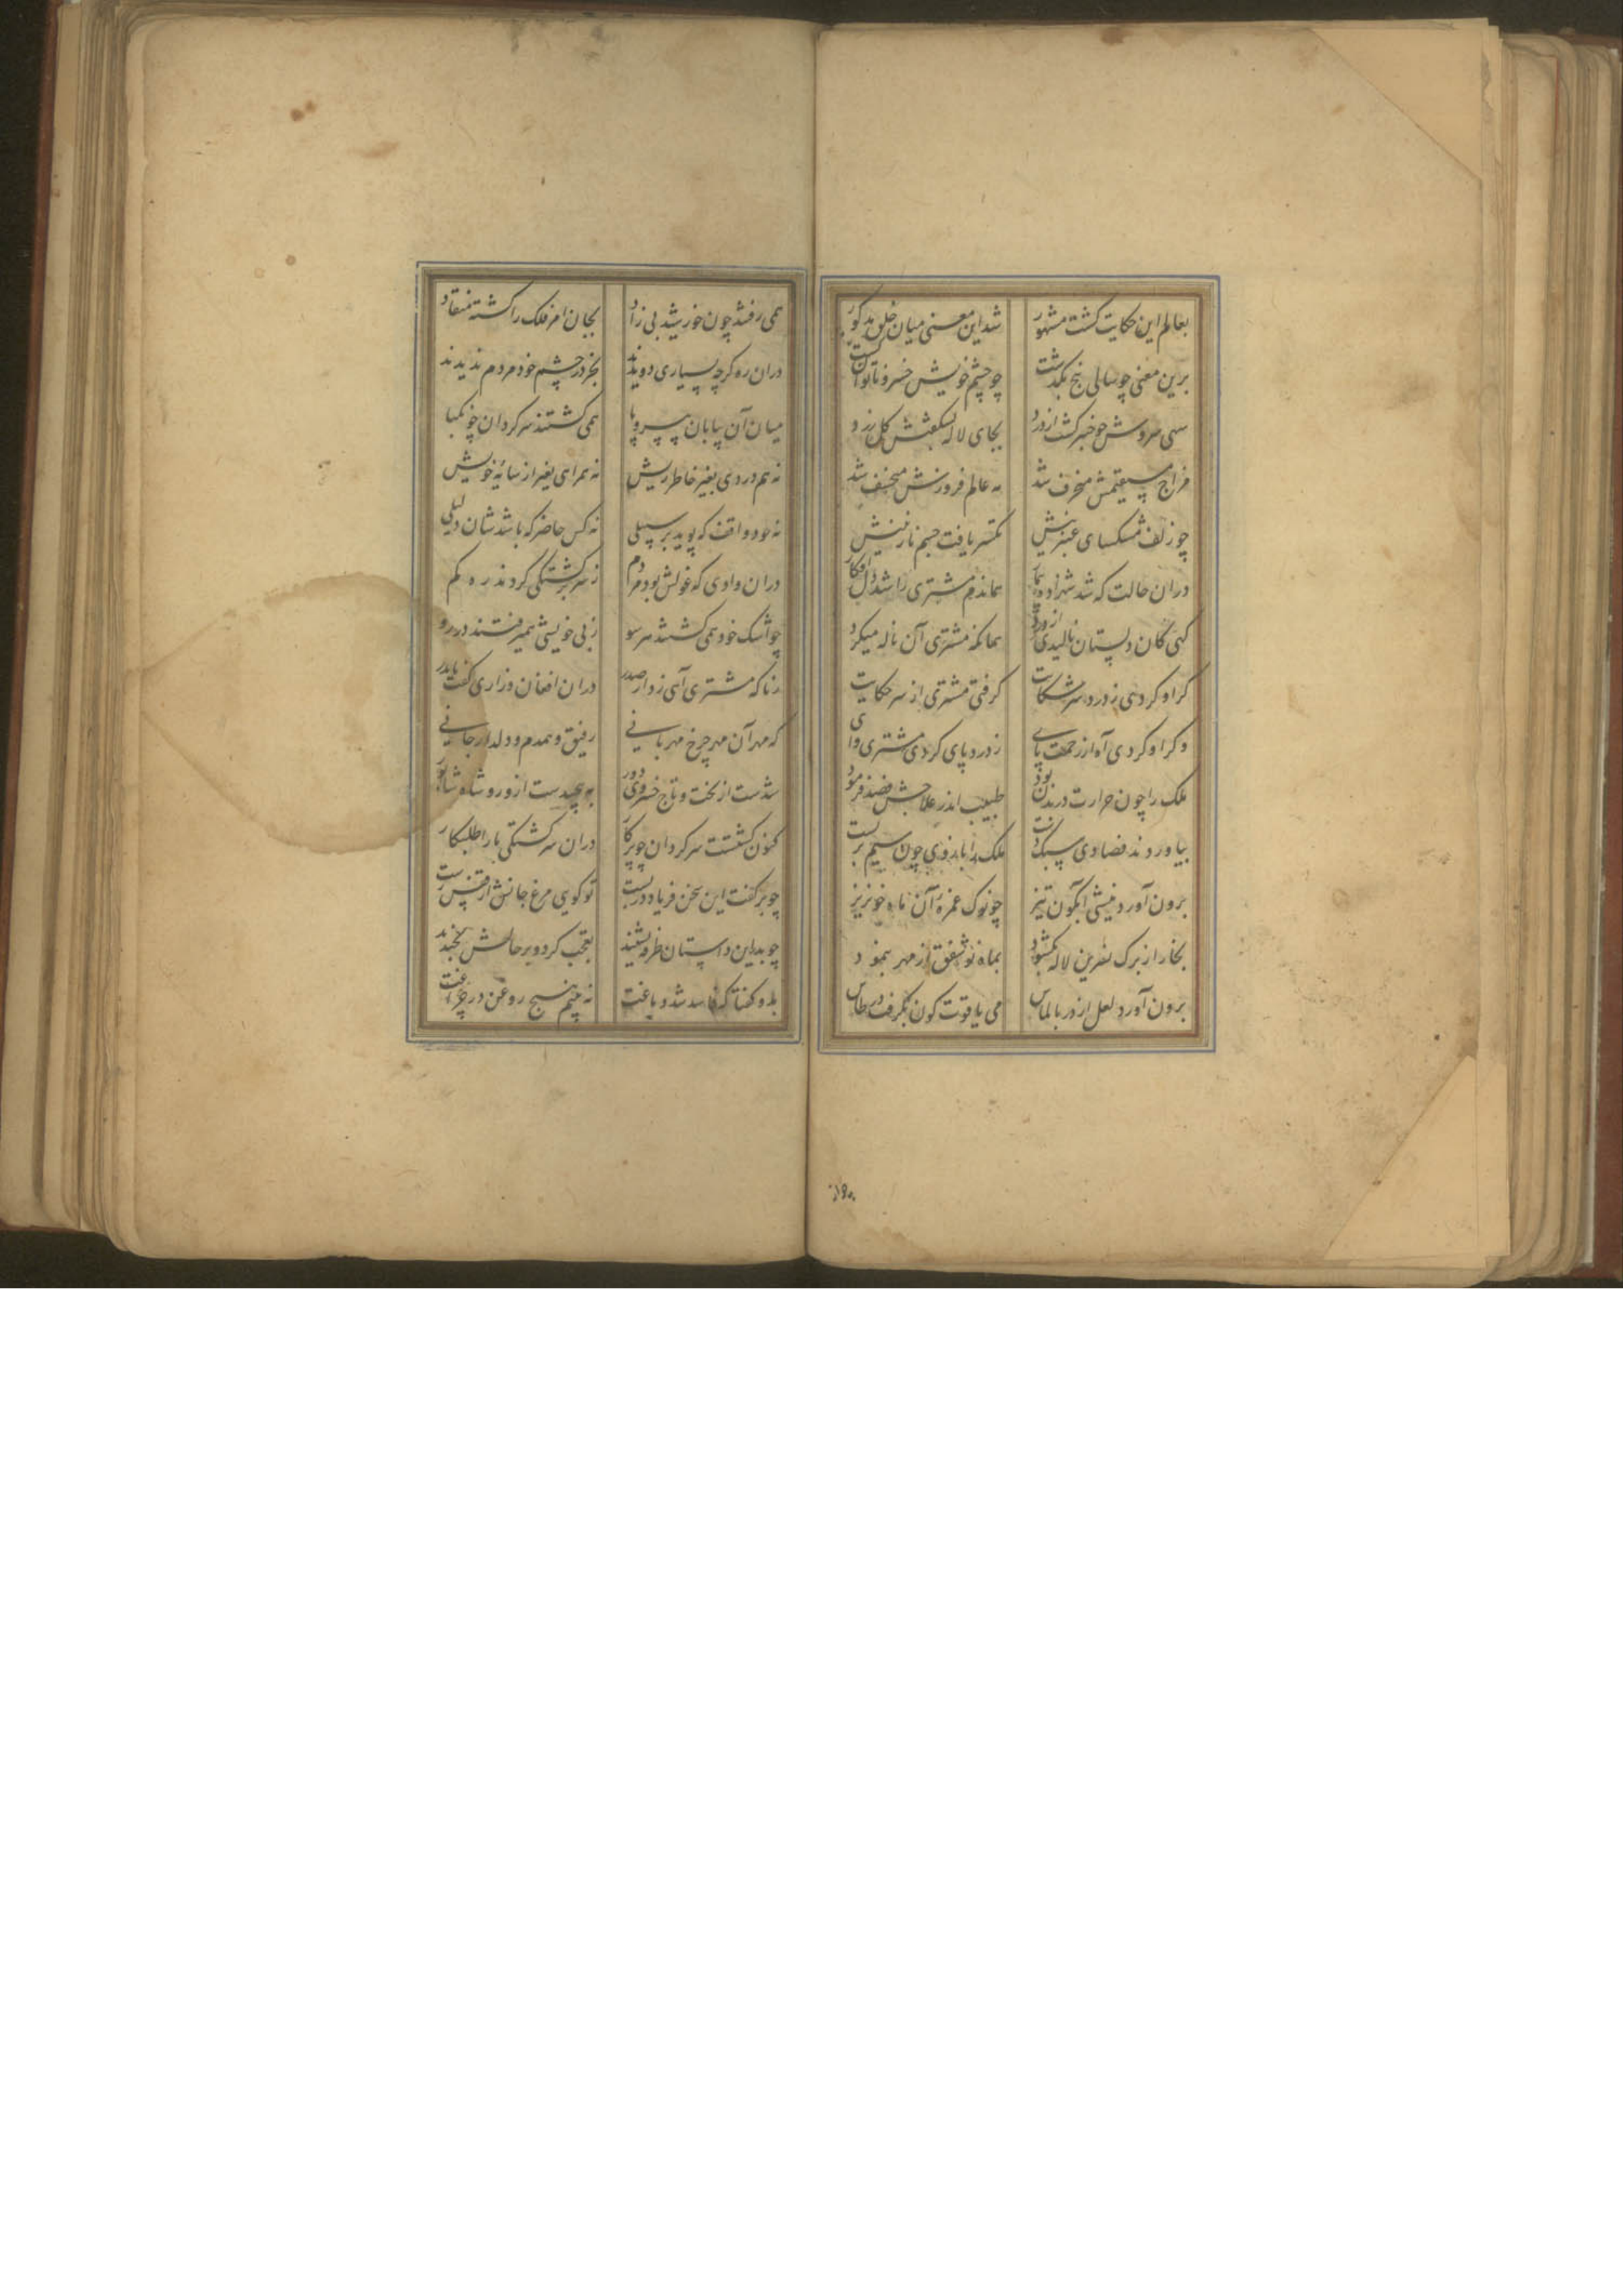 بعالم این حکایت کشت مشهور شد این معنی میان خلق مذکور
برین معنی چو سالی پنج بگذشت چو چشم خویش خسرو ناتوان گشت
سهی سروش چو خیری گشت از درد بجای لاله بشکفتش گل زرد
مزاج مستقیمش منحرف شد مه عالم فروزش منخسف شد
چو زلف مشکسای عنبرینش تکسر یافت جسم نازنینش
دران حالت که شد شهزاده بیمار بماندم مشتری را شد دل افکار
کهی کان دلستان نالیدی از درد همانکه مشتری آن ناله میکرد
کر او کردی ز درد سر شکایت کرفتی مشتری از سر حکایت
وکر او کردی آه از زحمت پای ز درد پای کردی مشتری وای
ملک را چون حرارت در بدن بود طبیب اندر علاجش فصد فرمود
بیاوردند فصادی سبک دست ملک را بازوی چون سیم بربست
برون آورد نیشی آبگون تیز چو نوک غمزه آن ماه خونریز
بخار از برک نسرین لاله بکشود بماه نو شفق از مهر بنمود
برون آورد لعل از در بالماس می یاقوت کون بکرفت در طاس
همی رفتند چون خورشید بی زاد بجان امر فلک را کشته منقاد
دران ره کرچه بسیاری دویدند بجز در چشم خود مردم ندیدند
میان آن بیابان بی سر و پا همی کشتند سرکردان چو نکبا
نه هم دردی بغیر خاطر ریش نه همراهی بغیر از سایه خویش
نه خود واقف که پوید بر سبیلی نه کس حاضر که باشدشان دلیلی
دران وادی که غولش بود مردم ز سرکشتکی کردند ره کم
چو اشک خود همی کشتند هر سو ز بی خویشی همیرفتند در رو
زناکه مشتری آهی زد از صدر دران افغان و زاری کفت با بدر
که مهر آن مهر چرخ مهربانی رفیق و همدم و دلدار جانی
شدست از تخت و تاج خسروی دور بپیچیدست ازو رو شاه شاپور
کنون کشتست سرکردان چو پرکار دران سرکشتکی ما را طلبکار
چو برکفت این سخن فریاد دربست تو کویی مرغ جانش از قفس رست
چو بدر این داستان طرفه بشنید تعجب کرد و بر حالش بخندید
بدو کفتا که فاسد شد دماغت نه بینم هیچ روغن در چراغت